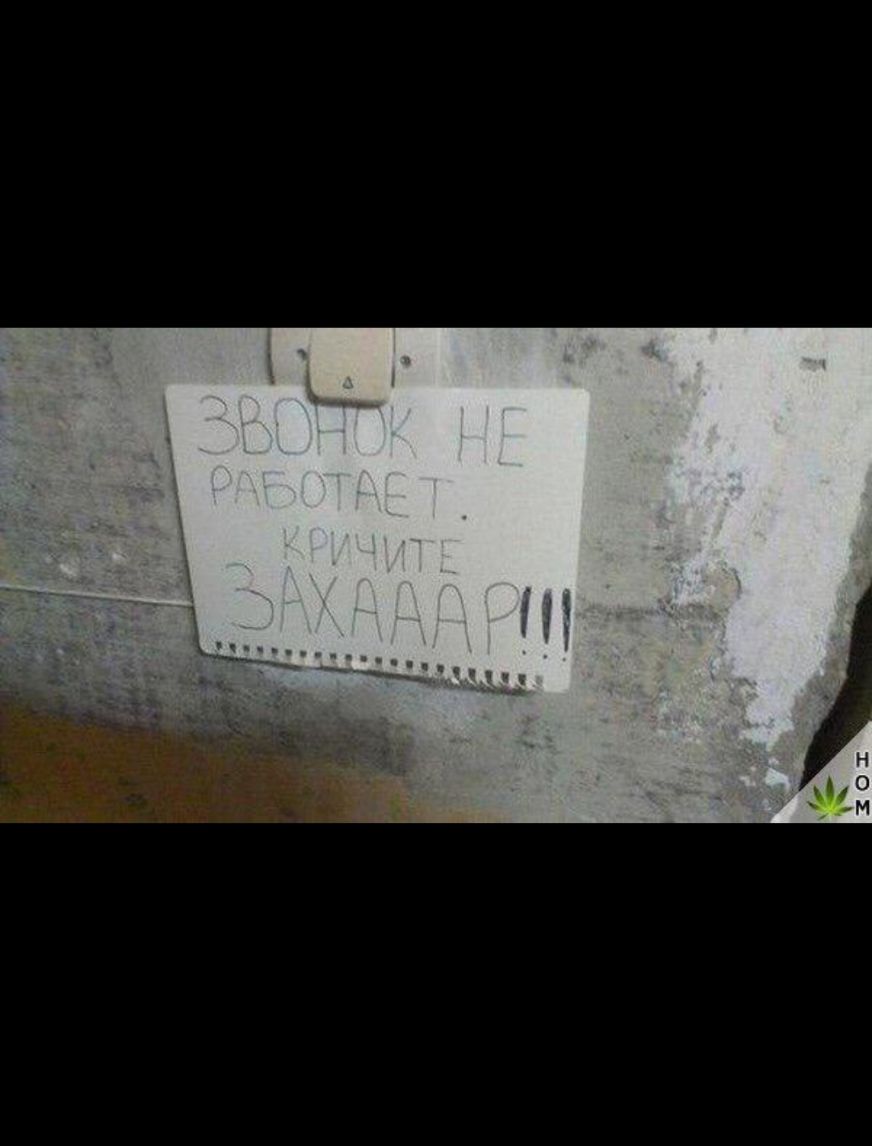 ЗВОНОК НЕ
РАБОТАЕТ.
КРИЧИТЕ
ЗАХАААР!!!
H
O
M